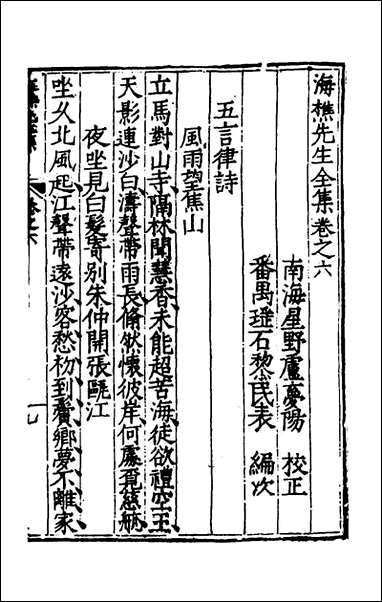 海樵先生全集卷之六
南海星野盧夢陽 校正
番禺瑤石黎民表 編次
五言律詩
風雨望焦山
立馬對山寺隔林聞慧香未能超苦海徒欲禮空王
天影連沙白濤聲帶雨長翛然懷彼岸何處覓慈航
夜坐見白髮寄別朱仲開張甌江
坐久北風起江聲帶遠沙客愁初到鬢鄉夢不離家
卷之六